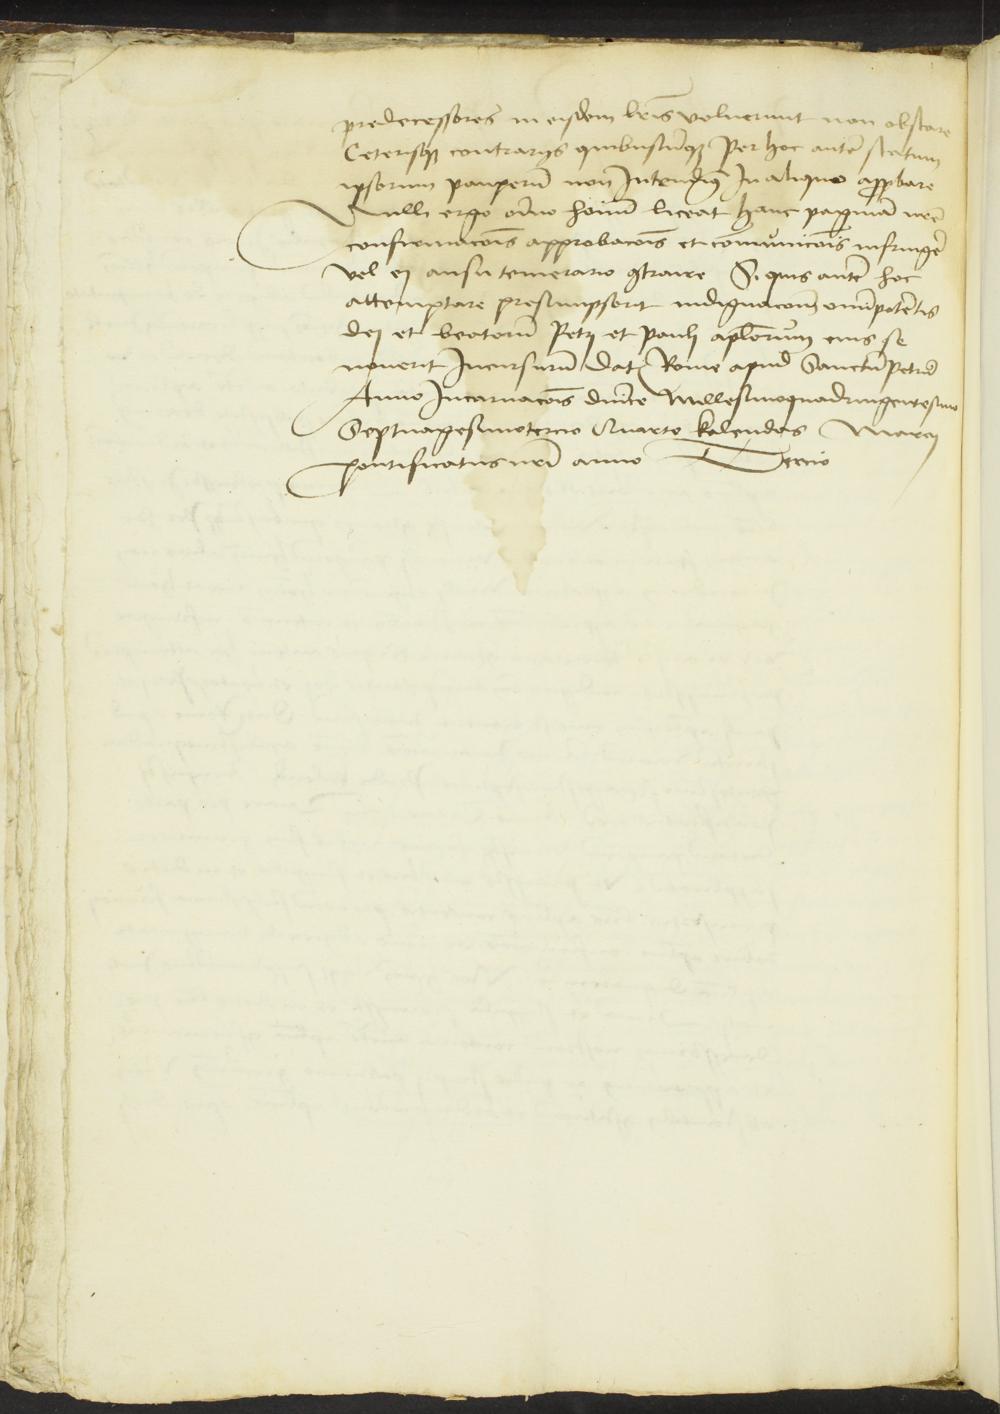 predecessores in eisdem lr̃is voluerunt non obstare
Ceterisq₃ contrarijs quibuscũq₃ Per hoc autẽ statum
ipsorum pauperũ non Intendim⁹ In aliquo approbare
Nulli ergo om̃no hoĩm liceat hanc paginã nr̃e
confirmacõis approbacõis et com̃unicõis infringe͂
vel ei ausu temerario ꝯtraire Si quis autẽ hoc
attemptare presumpserit indignacoem̃ omnipotẽtis
dei et beatorũ Petri et Pauli aplõrum eius se
nouerit Incursurũ Dat̃ Rome apud Sanctũ Petrũ
Anno Incarnacõis dnĩce Millesimoquadringentesimo
Septuagesimotercio Quarto kalendas Marcij
pontificatus nr̃i anno Tercio